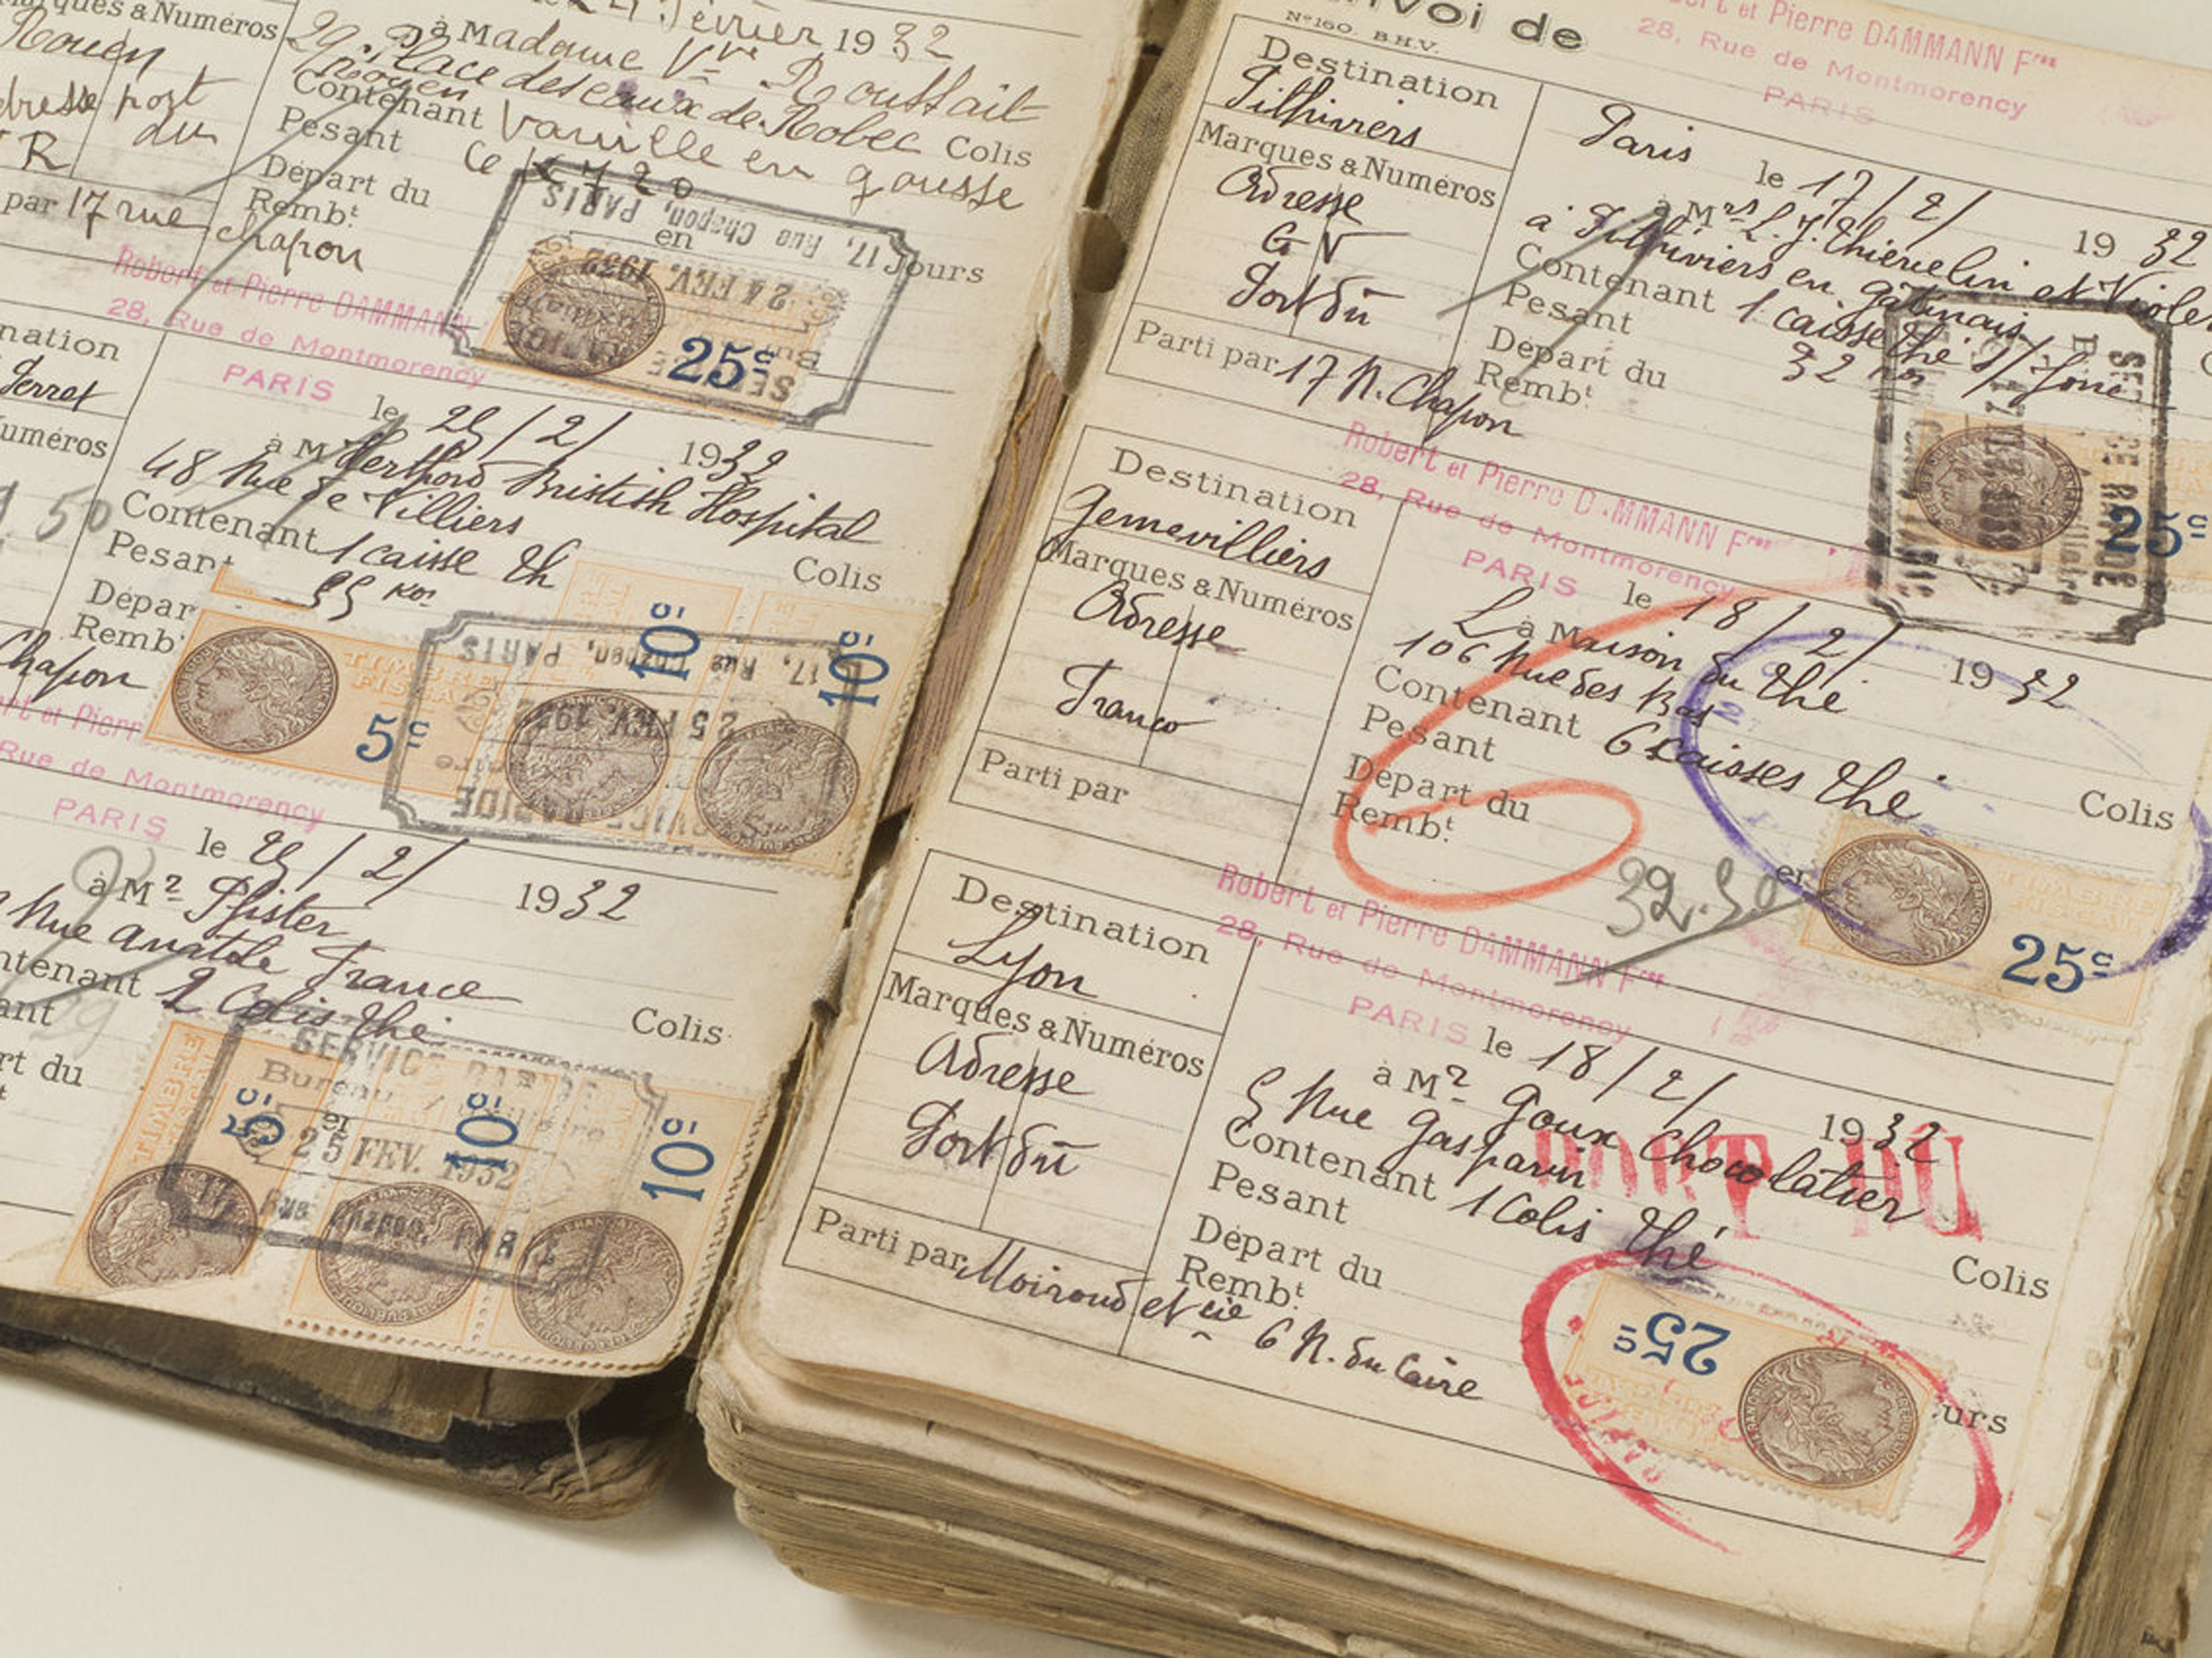 Marques & Numéros
Rouen
adresse port
du
R
par 17 rue chapon
24 février 1932
à Madame Vve
29. Place des eaux de Robec
Rouen
Contenant Vanille en gousse
Colis
Pesant
Ce
Départ du
Rembt
en
Jours
17, Rue Chapon, PARIS
24 FEV. 1932
25c
Robert et Pierre DAMMANN
28, Rue de Montmorency
PARIS
le 25/2/ 1932
à M Herthord Bristish Hospital
48 Rue de Villiers
Contenant 1 caisse th
Colis
Pesant
kos
Départ
Rembt
Chapon
50
TIMBRE
FISCAL
5c
10c
10c
17, Rue Chapon, PARIS
25 FEV. 1932
SERVICE RAPIDE
Rue de Montmorency
PARIS
le 25/2/ 1932
à Mr Pfister
Rue anatole France
Contenant 2 Colis thé
Colis
SERVICE RAPIDE
Bureau
25 FEV. 1932
Rue Chapon, PARIS
TIMBRE
5c
10c
10c
Envoi de
No 160. B.H.V.
Robert et Pierre DAMMANN Fres
28, Rue de Montmorency
PARIS
Destination
Pithiviers
Marques & Numéros
Adresse
G V
Port dû
Parti par 17 R. Chapon
Paris
le 17/2/ 1932
à Mrs L. J.
à Pithiviers en gâtinais
Contenant 1 caisse thé
Pesant
32 kos
Départ du
Rembt
25c
Robert et Pierre DAMMANN Fres
28, Rue de Montmorency
PARIS
Destination
Genevilliers
Marques & Numéros
Adresse
Franco
Parti par
le 18/2/ 1932
à Maison du thé
106 Rue des Bas
Contenant 6 caisses thé
Colis
Pesant
Départ du
Rembt
32.50
25c
Robert et Pierre DAMMANN Fres
28, Rue de Montmorency
PARIS
Destination
Lyon
Marques & Numéros
Adresse
Port dû
Parti par Moiroud et Cie 6 R. du Caire
le 18/2/ 1932
à Mr Goux Chocolatier
5 Rue Gasparin
PORT DU
Contenant 1 Colis thé
Colis
Pesant
Départ du
Rembt
25c